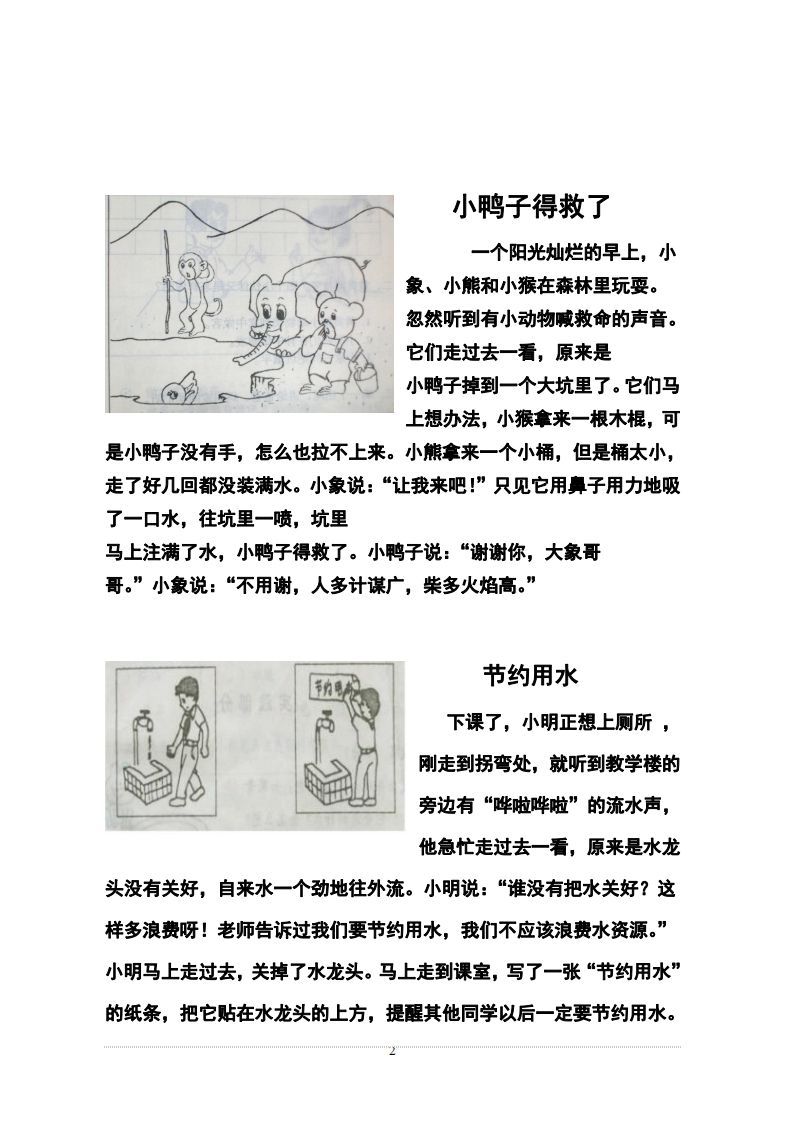 小鸭子得救了
一个阳光灿烂的早上，小
象、小熊和小猴在森林里玩耍。
忽然听到有小动物喊救命的声音。
它们走过去一看，原来是
小鸭子掉到一个大坑里了。它们马
上想办法，小猴拿来一根木棍，可
是小鸭子没有手，怎么也拉不上来。小熊拿来一个小桶，但是桶太小，
走了好几回都没装满水。小象说：“让我来吧！”只见它用鼻子用力地吸
了一口水，往坑里一喷，坑里
马上注满了水，小鸭子得救了。小鸭子说：“谢谢你，大象哥
哥。”小象说：“不用谢，人多计谋广，柴多火焰高。”
节约用水
节约用水
下课了，小明正想上厕所 ，
刚走到拐弯处，就听到教学楼的
旁边有“哗啦哗啦”的流水声，
他急忙走过去一看，原来是水龙
头没有关好，自来水一个劲地往外流。小明说：“谁没有把水关好？这
样多浪费呀！老师告诉过我们要节约用水，我们不应该浪费水资源。”
小明马上走过去，关掉了水龙头。马上走到课室，写了一张“节约用水”
的纸条，把它贴在水龙头的上方，提醒其他同学以后一定要节约用水。
2